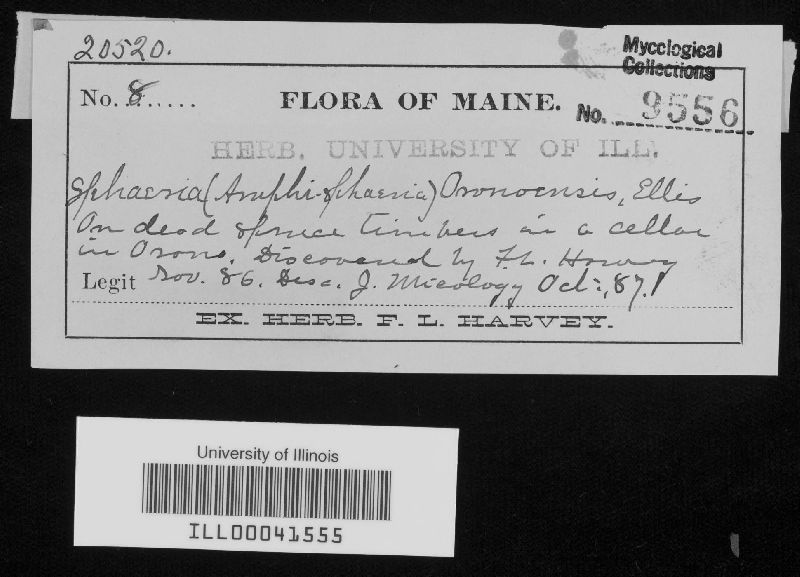 20520.
Mycological
Collections
No. 8.....
FLORA OF MAINE.
No. 9556
HERB. UNIVERSITY OF ILL.
Sphaeria (Amphi-sphaeria) Oronoensis, Ellis
On dead spruce timbers in a cellar
in Orono. Discovered by F. L. Harvey
Legit Nov. 86. Desc. J. Micology Oct., 87.
EX. HERB. F. L. HARVEY.
University of Illinois
ILL00041555